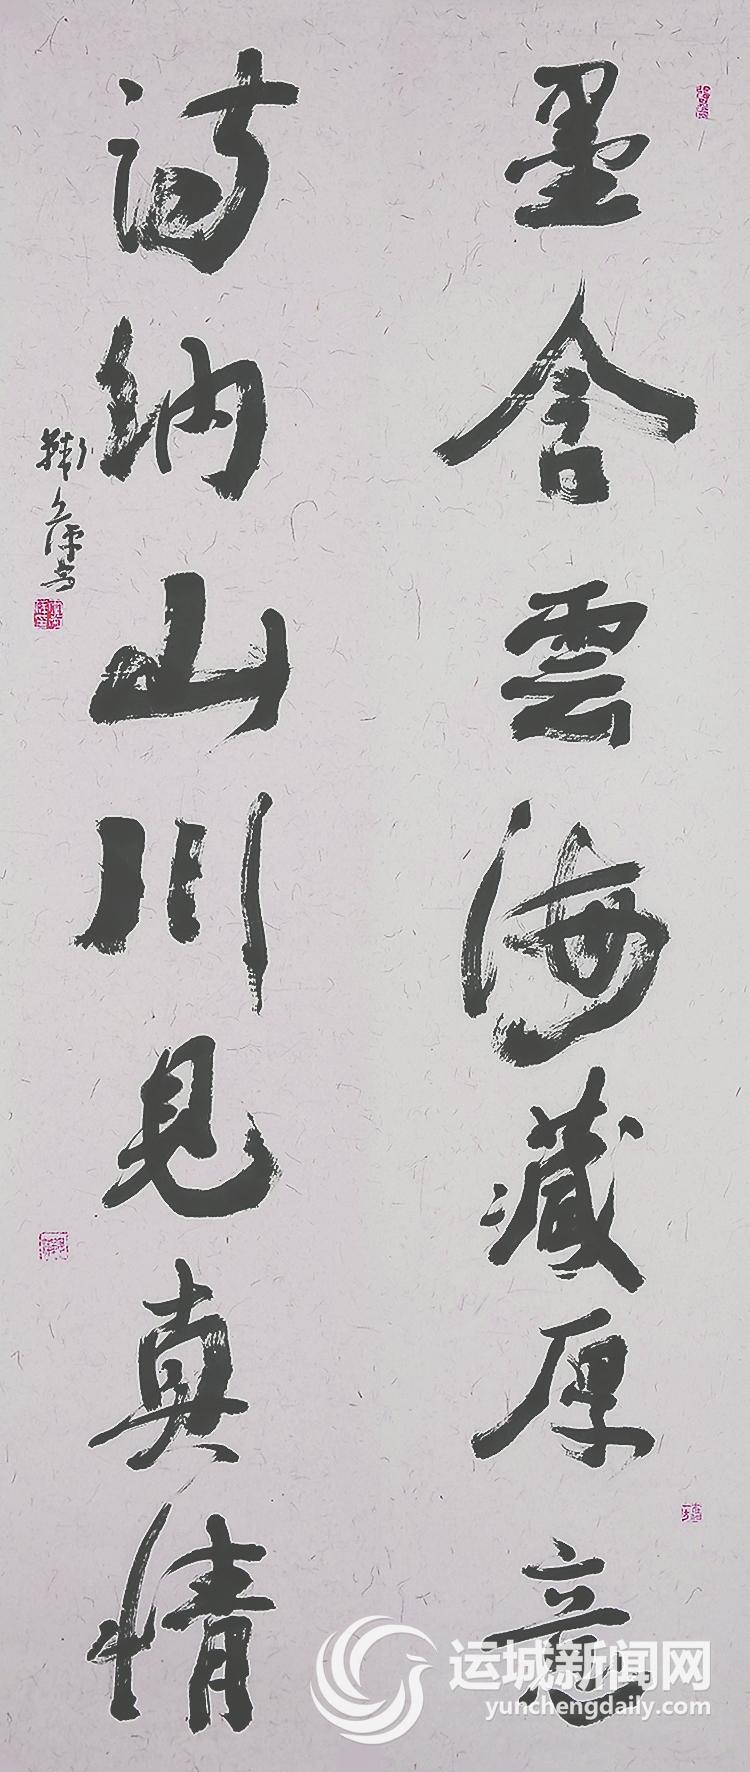 墨含雲海藏厚意
詩納山川見真情
运城新闻网
yunchengdaily.com